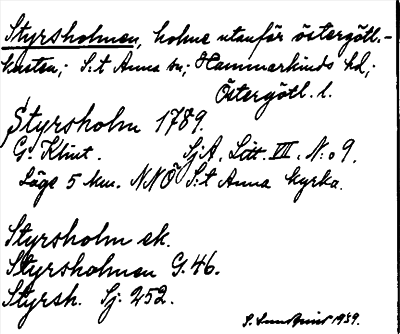 Styrsholmen, holme utanför östergötl.-
kusten; S:t Anna sn; Hammarkinds hd;
Östergötl. l.
Styrsholm 1789.
G. Klint. SjA. Litt. VII. N:o 9.
Läge 5 km. NNÖ S:t Anna kyrka.
Styrsholm ek.
Styrsholmen G. 46.
Styrsh. Sj. 252.
S. Lundqvist 1939.